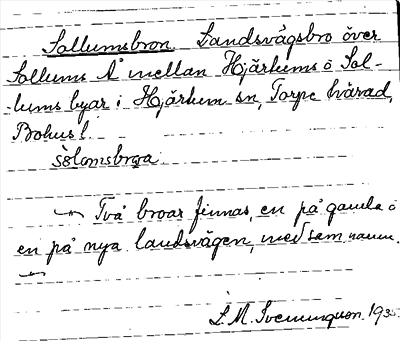 Sollumsbron Landsvägsbro över
Sollums Å mellan Hjärtums o Sol-
-lums byar i Hjärtum sn, Torpe härad,
Bohusl.
sòlomsbroa
Två broar finnas, en på gamla o
en på nya landsvägen, med sam namn.
L.M. Svenungsson. 193